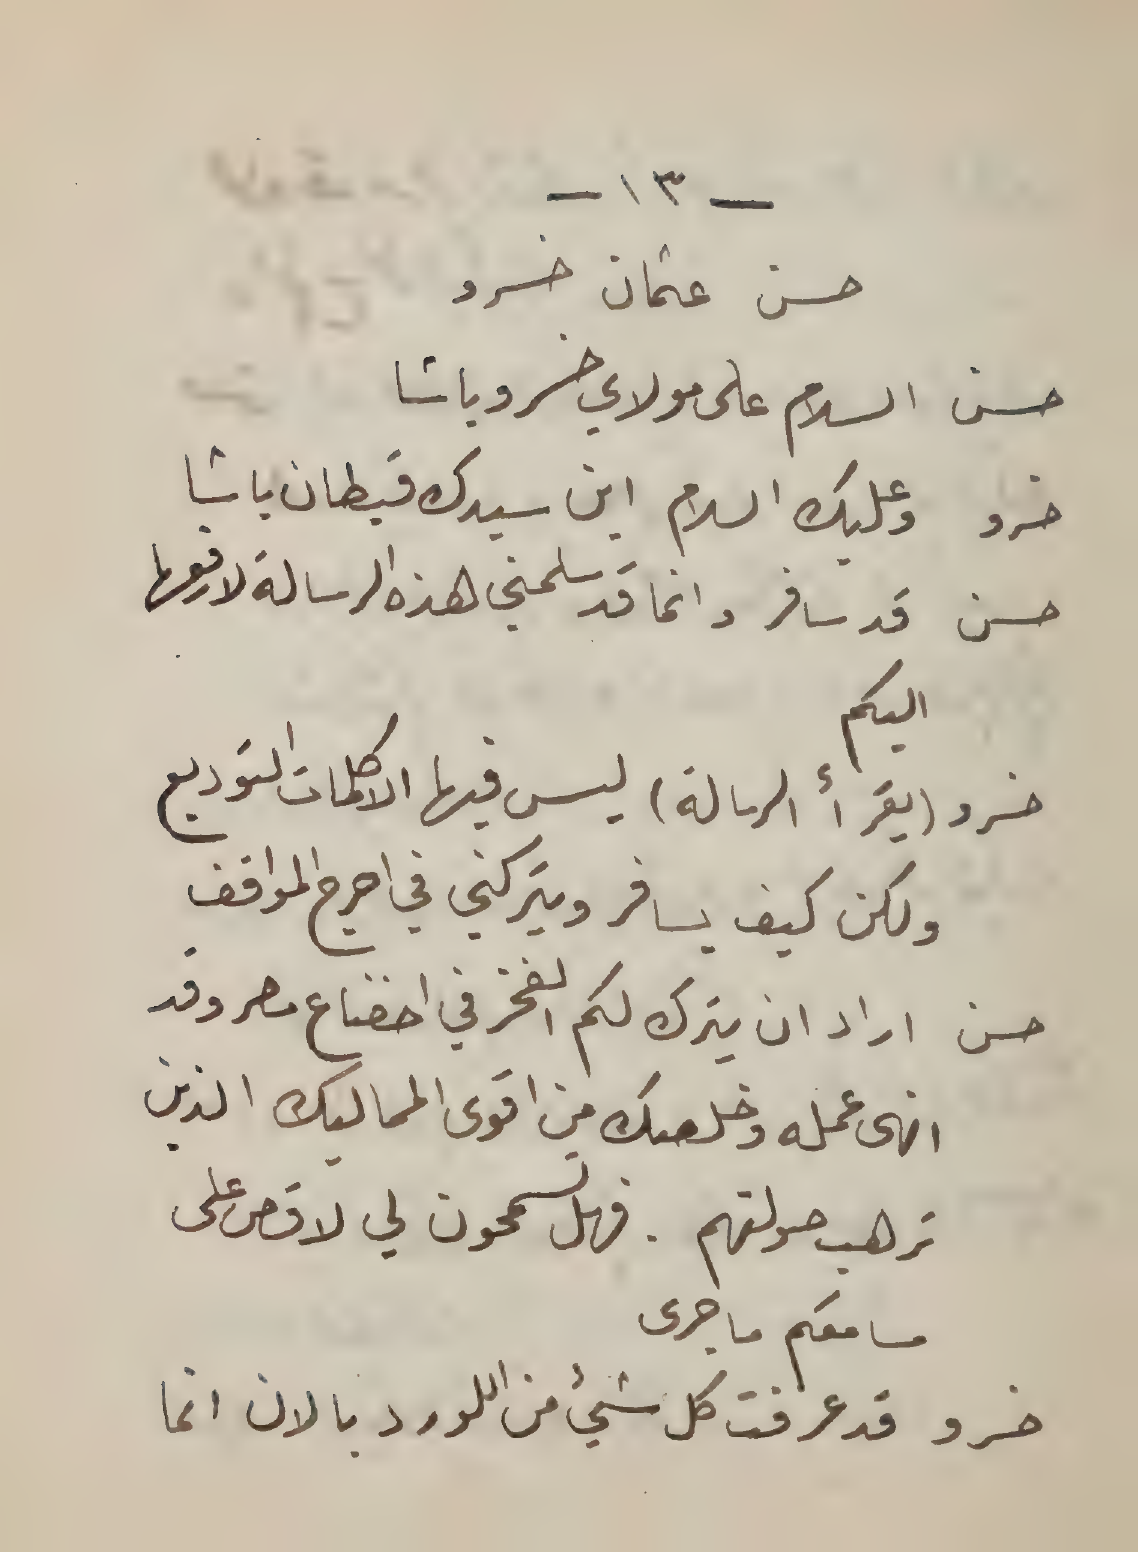 — ١٣ —
حسن عثمان خسرو
حسن السلام على مولاي خسرو باشا
خسرو وعليك السلام اين سيدك قبطان باشا
حسن قد سافر وانما قد سلمني هذه الرسالة لارفعها
اليكم
خسرو (يقرأ الرسالة) ليس فيها الا كلمات التوديع
ولكن كيف يسافر ويتركني في احرج المواقف
حسن اراد ان يترك لكم الفخر في اخضاع مصر وقد
انهى عمله وخلصك من اقوى المماليك الذين
ترهب صولتهم . فهل تسمحون لي لاقص على
مسامعكم ما جرى
خسرو قد عرفت كل شيئ من اللورد بالان انما